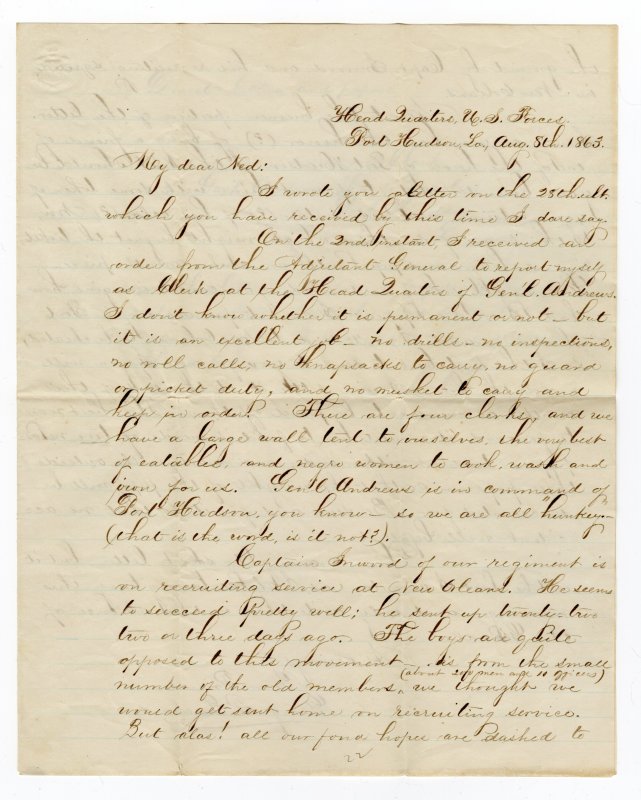 Head Quarters, U. S. Forces,
Port Hudson, La, Aug. 8th. 1863.
My dear Ned:
I wrote you a letter on the 28th ult.
which you have received by this time I dare say.
On the 2nd instant, I received an
order from the Adjutant General to report myself
as Clerk at the Head Quarters of Gen'l. Andrews.
I don't know whether it is permanent or not – but
it is an excellent – no drills – no inspections,
no roll calls, no knapsacks to carry, no guard
or picket duty, and no musket to carry and
keep in order! There are four clerks, and we
have a large wall tent to ourselves, the very best
of eatables, and negro women to cook, wash and
iron for us. Gen'l Andrews is in command of
Port Hudson, you know – so we are all "hunkey" –
(that is the word, is it not?).
Captain Inwood of our regiment is
on recruiting service at New Orleans. He seems
to succeed pretty well; he sent up twenty two
two or three days ago. The boys are quite
opposed to this movement as from the small
(about 200 men and 10 officers)
number of the old members, we thought we
would get sent home on recruiting service.
But alas! all our fond hopes are dashed to